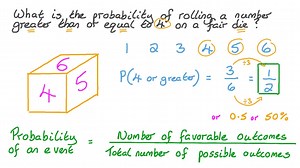 What is the probability of rolling a number
greater than or equal to 4 on a fair die?
1 2 3 4 5 6
6
4 5
÷3
P(4 or greater) = 3/6 = 1/2
÷3
or 0.5 or 50%
Probability of an event = Number of favorable outcomes
Total number of possible outcomes